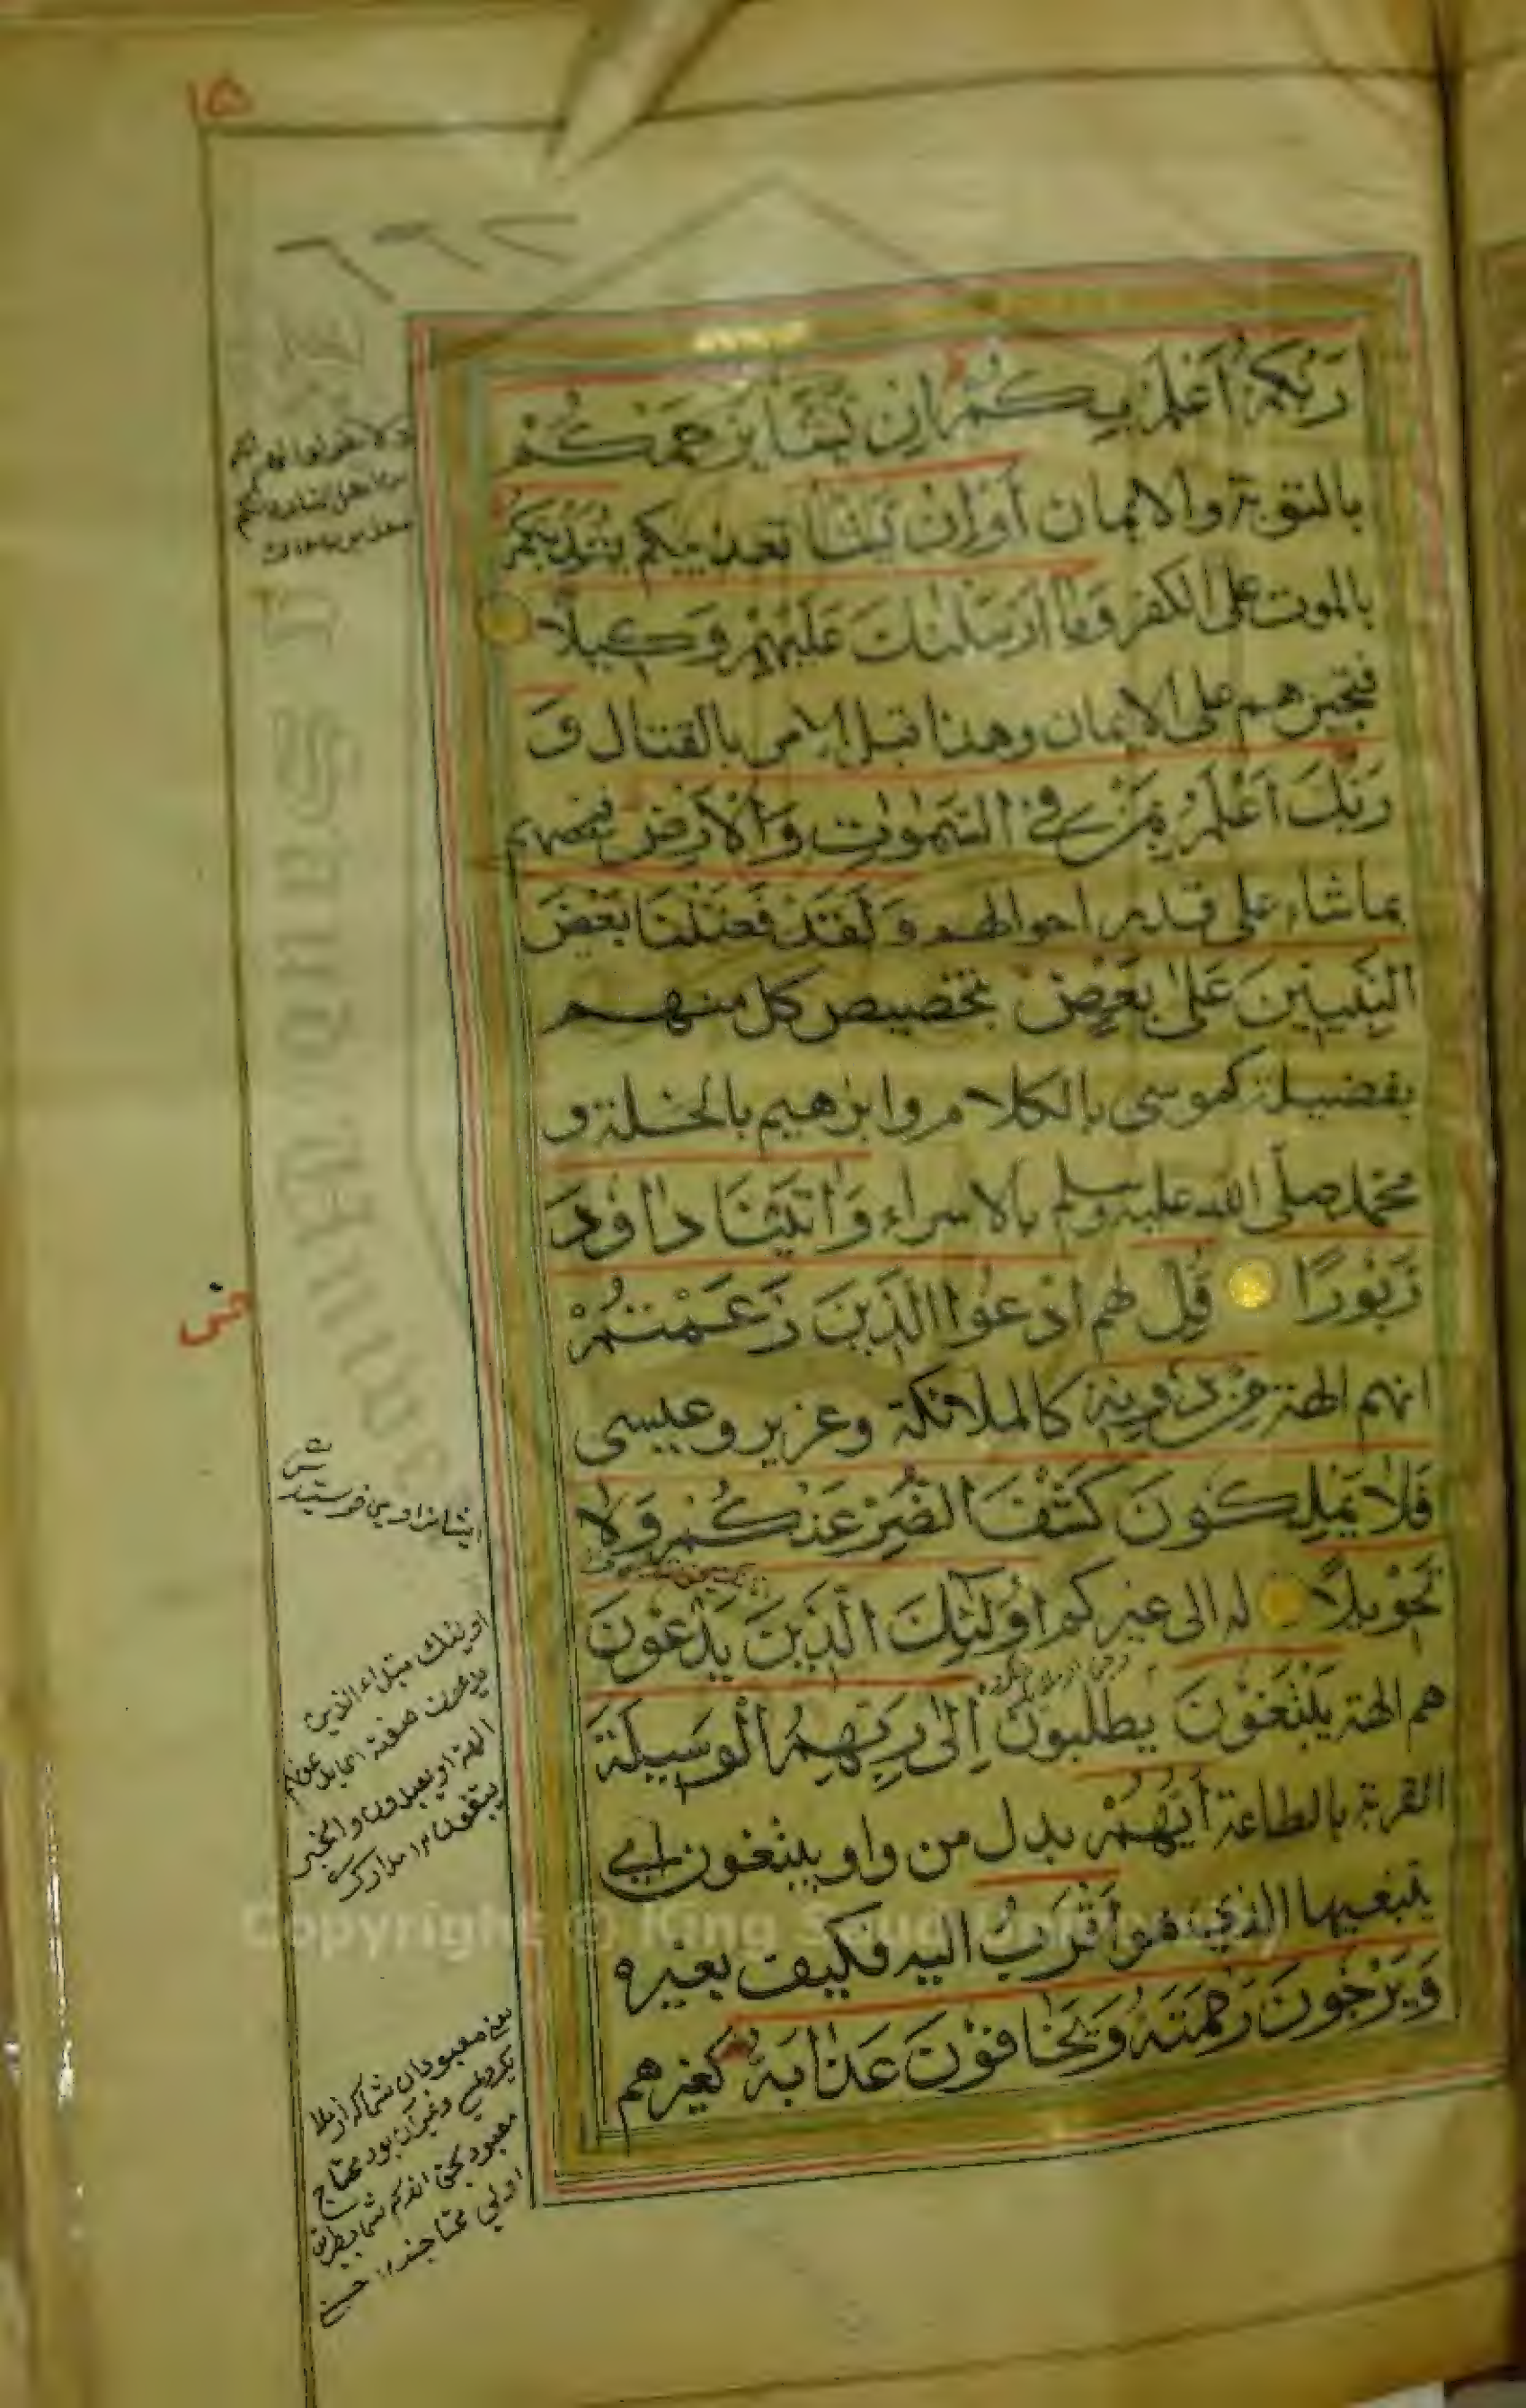 ١٥
رَبُّكُمْ أَعْلَمُ بِكُمْ إِنْ يَشَأْ يَرْحَمْكُمْ
بالتوبة والايمان أَوْ إِنْ يَشَأْ تعذيبكم يُعَذِّبْكُمْ
بالموت على الكفر وَمَا أَرْسَلْنٰكَ عَلَيْهِمْ وَكِيلًا
فتجبرهم على الايمان وهذا قبل الامر بالقتال وَ
رَبُّكَ أَعْلَمُ بِمَنْ فِي السَّمٰوٰتِ وَالْأَرْضِ فيخصهم
بماشاء على قدر احوالهم وَلَقَدْ فَضَّلْنَا بَعْضَ
النَّبِيِّينَ عَلٰى بَعْضٍ بتخصيص كل منهم
بفضيلة كموسى بالكلام وابرهيم بالخلة و
محمد صلى الله عليه وسلم بالاسراء وَاٰتَيْنَا دَاوٗدَ
زَبُورًا قُلِ لهم ادْعُوا الَّذِينَ زَعَمْتُمْ
انهم الهة مِنْ دُونِهٖ كالملائكة وعزير وعيسى
فَلَا يَمْلِكُونَ كَشْفَ الضُّرِّ عَنْكُمْ وَلَا
تَحْوِيلًا له الى غيركم أُولٰٓئِكَ الَّذِينَ يَدْعُونَ
هم الهة يَبْتَغُونَ يطلبون إِلٰى رَبِّهِمُ الْوَسِيلَةَ
القربة بالطاعة أَيُّهُمْ بدل من واو يبتغون اي
يبتغيها الذي هو أَقْرَبُ اليه فكيف بغيره
وَيَرْجُونَ رَحْمَتَهٗ وَيَخَافُونَ عَذَابَهٗ كغيرهم
اولئك مبتداء الذين
يدعون صفته اى
الهة او يعبدون والخبر
يبتغون مدارك
يعنى معبودان شما كه از ملا
معبود بحق
Copyright © King Saud University